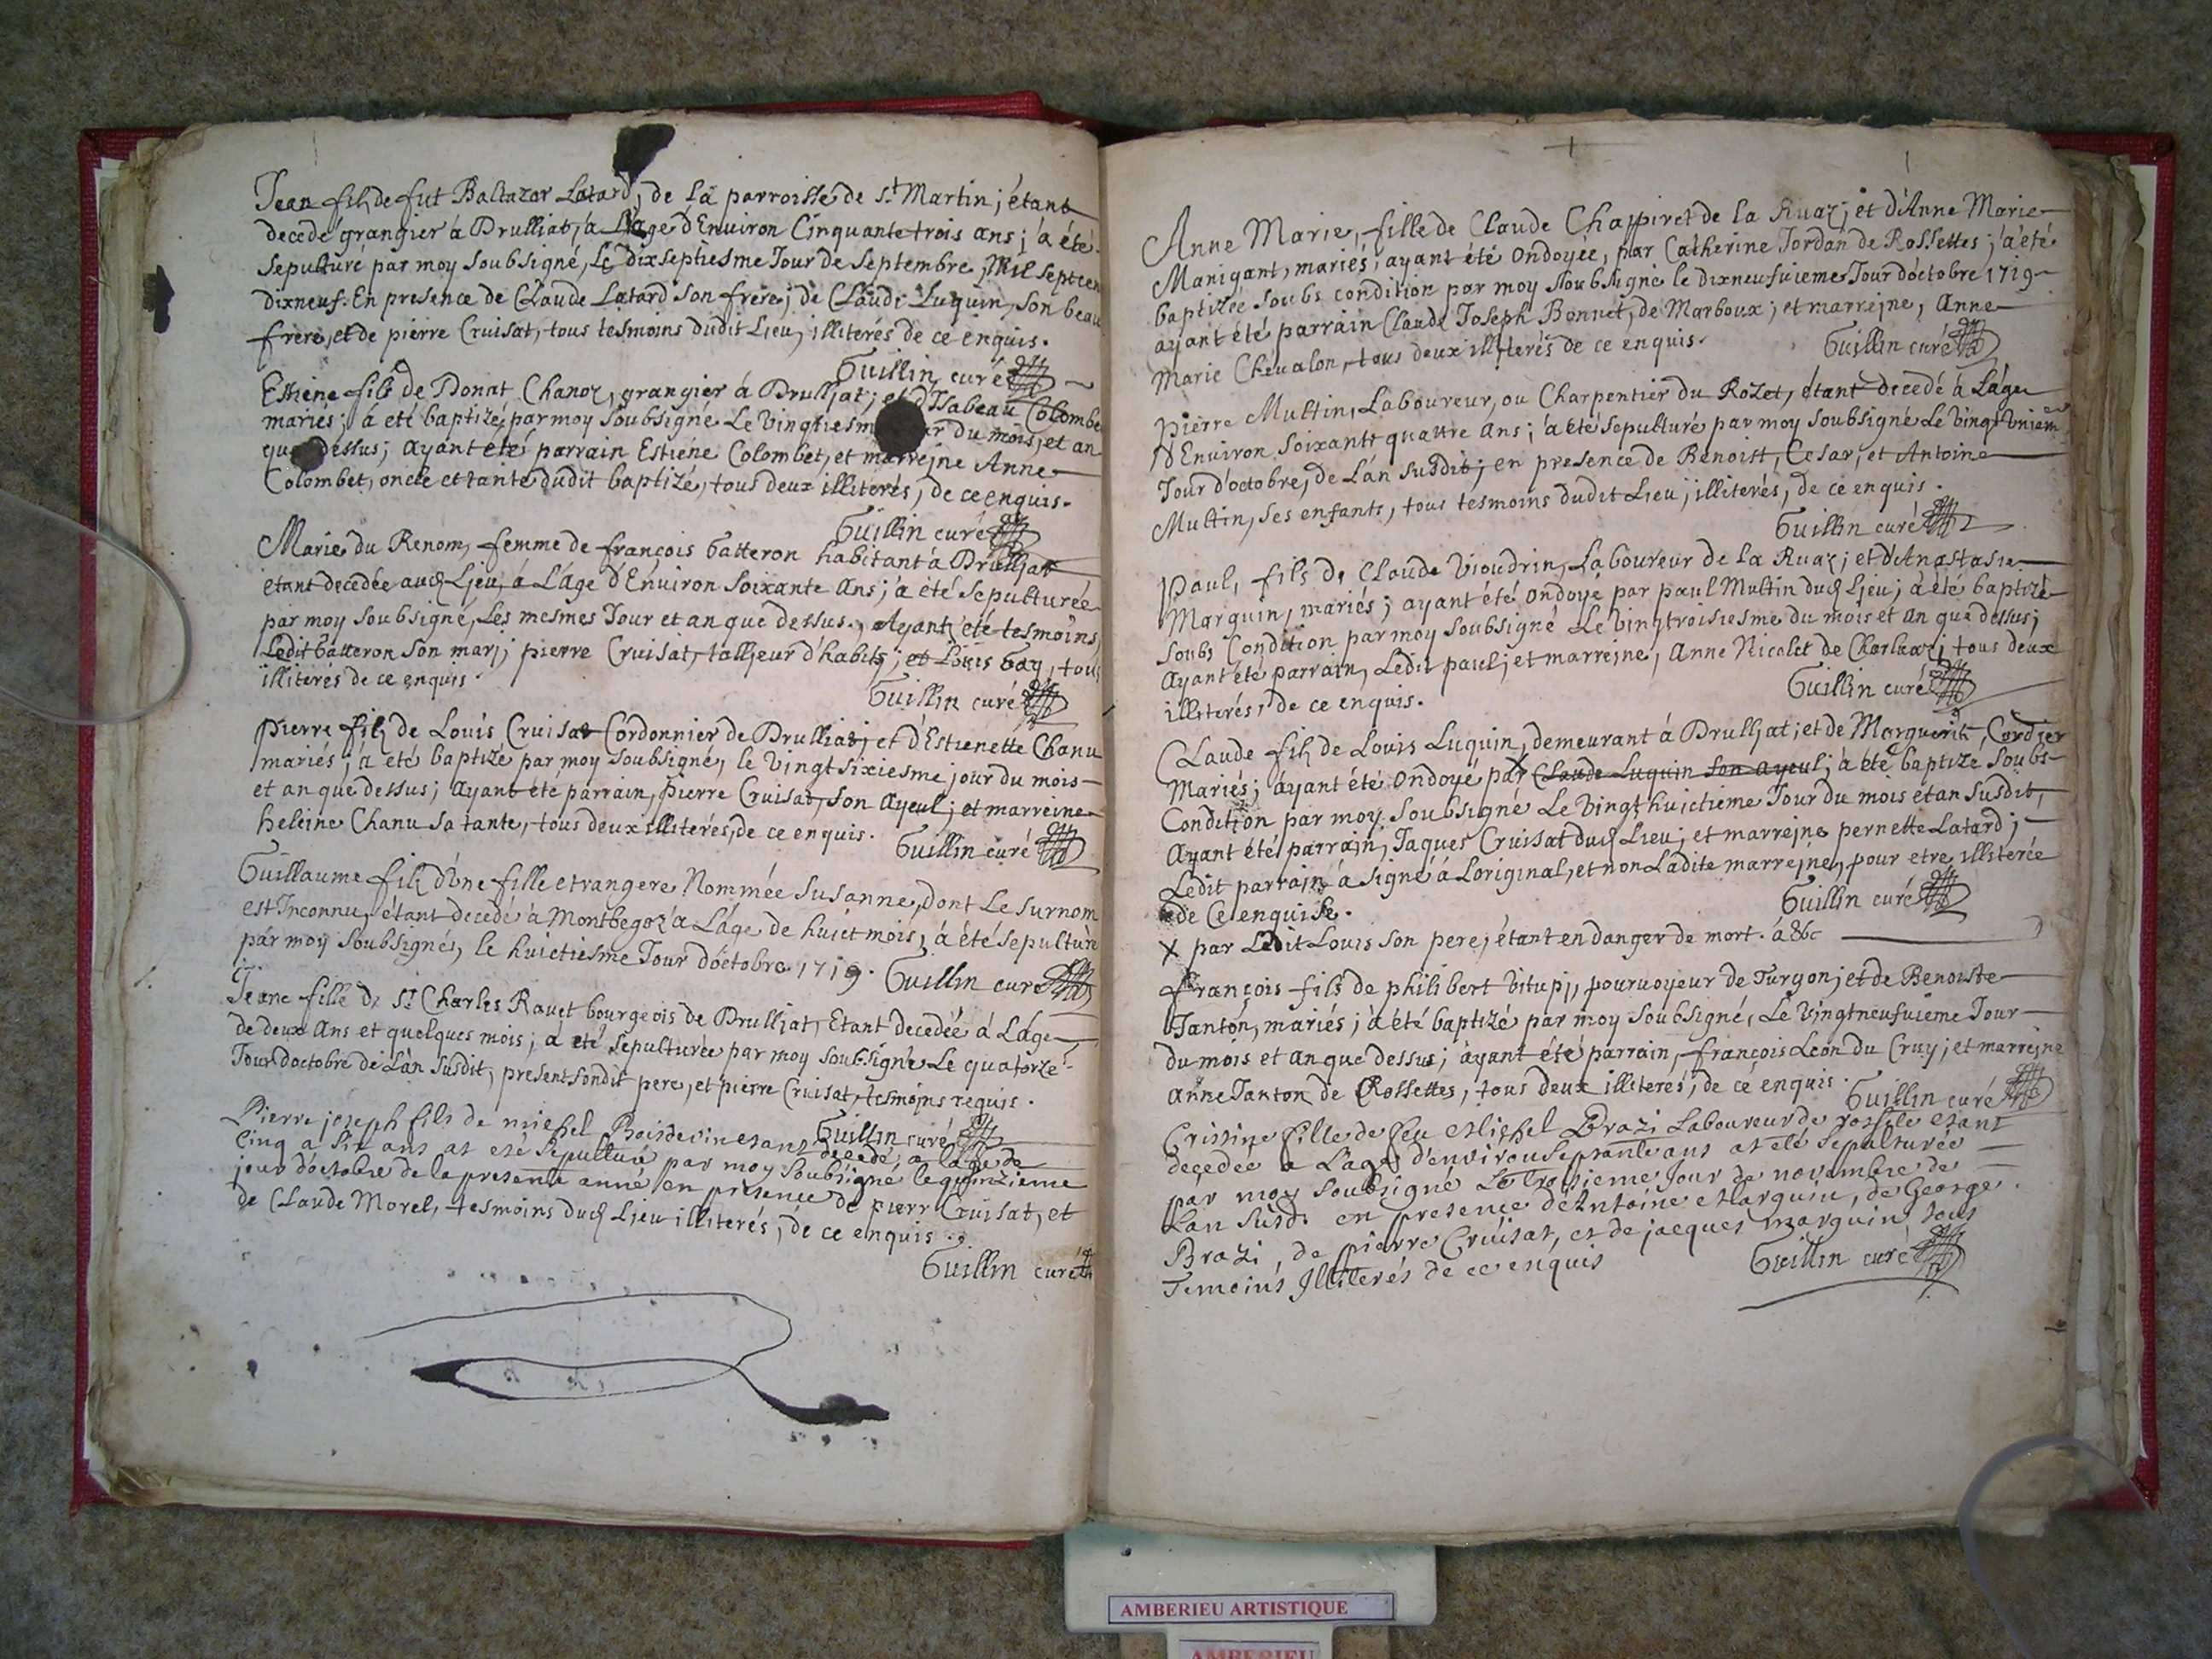 Jean filz de fut Baltazar Latard, de la parroisse de St Martin; étant
decedé grangier à Drulliat, à L'age d'Environ Cinquante trois ans; à été
Sepulturé par moy soubsigné, Le dixseptiesme Jour de Septembre, Mil Septcen
dixneuf. En presence de Claude Latard son frere; de Claude Luquin, son beau
frere, et de pierre Cruisat, tous tesmoins dudit Lieu, illiterés de ce enquis.
Guillin curé
Estiene fils de Donat Chanoz, grangier à Drulljat; et d'Isabeau Colombe
mariés; à eté baptizé par moy soubsigné Le Vingtiesm ur du mois, et an
que dessus; ayant été parrain Estiéne Colombet, et marrejne Anne
Colombet, oncle et tante dudit baptizé, tous deux illiterés, de ce enquis.
Guillin curé
Marie du Renom, femme de françois Gatteron habitant à Drulljat
étant decedée aud Ljeu, à L'age d'Environ Soixante ans; à été Sepulturée
par moy soubsigné, Les mesmes Jour et an que dessus. Ayant été tesmoins,
Ledit Gatteron son marj; pierre Cruisat, talljeur d'habits; et Loüis Gay, tous
illiterés de ce enquis.
Guillin curé
Pierre filz de Louis Cruisat Cordonnier de Drulliat; et d'Estienette Chanu
mariés; à eté baptizé par moy soubsigné, le vingt sixiesme jour du mois
et an que dessus; ayant été parrain, Pierre Cruisat, son Ayeul; et marreine
heleine Chanu sa tante, tous deux illiterés, de ce enquis. Guillin curé
Guillaume filz d'une fille etrangere Nommée Susanne, dont Le surnom
est Inconnu, étant decedé à Montbegoz à L'age de huict mois, à été sepulturé
par moy soubsigné, le huictiesme Jour d'octobre 1719. Guillin curé
Jeane fille de Sr Charles Rauet bourgeois de Drulljat, Etant decedée à L'age
de deux Ans et quelques mois; à eté Sepulturée par moy soubsigné Le quatorze
Jour d'octobre de L'an Susdit, present sondit pere, et pierre Cruisat, tesmoins requis.
Guillin curé
Pierre joseph fils de michel Boisdevin estant decedé, a lage de
Cinq a Six ans at esté Sepulturé par moy soubsigné le quinzieme
jour doctobre de la presente anné en presence de pierr Cruisat, et
de Claude Morel, tesmoins dud Ljeu illiterés, de ce enquis.
Guillin curé
Anne Marie, fille de Claude Chappiret de la Ruaz; et d'Anne Marie
Manigant, mariés; ayant été ondoyée, par Catherine Jordan de Rossettes; à eté
baptizée soubs condition par moy soubsigné le dixneufuieme Jour d'octobre 1719
ayant été parrain Claude Joseph Bonnet, de Marboux; et marrejne, Anne
Marie Cheualon, tous deux illiterés de ce enquis.
Guillin curé
Pierre Multin, Laboureur, ou Charpentier du Rozet, étant decedé à L'age
d'Environ soixante quattre Ans; à été sepulturé par moy soubsigné Le vingt Uniem
Jour d'octobre, de L'an susdit; en presence de Benoist, Cesar, et Antoine
Multin, ses enfants, tous tesmoins dudit Lieu; illiterés, de ce enquis.
Guillin curé
Paul, fils de Claude Vioudrin, Laboureur de la Ruaz; et d'Anastasie
Marquin, mariés; ayant été ondoyé par paul Multin dud Ljeu; à été baptizé
Soubs Condition par moy soubsigné Le vingtroisiesme du mois et an que dessus;
Ayant été parrain, Ledit paul; et marrejne, Anne Nicolet de ; tous deux
illiterés, de ce enquis.
Guillin curé
Claude filz de Louis Luquin, demeurant à Drulljat; et de Marguerite Cordier
Mariés; ayant été ondoyé par X Claude Luquin son ayeul; à été baptizé Soubs
Condition par moy soubsigné Le Vingt huictieme Jour du mois et an Susdit,
Ayant été parrain, Jaques Cruisat dud Lieu; et marrejne pernette Latard;
Ledit parrain à signé à L'original, et non Ladite marrejne, pour etre illiterée
de ce enquise.
Guillin curé
X par Ledit Louis son pere; étant en danger de mort. à &c
François fils de philibert Vitupj, pouruoyeur de Turgon; et de Benoiste
Tanton, mariés; à été baptizé par moy soubsigné, Le Vingtneufuieme Jour
du mois et an que dessus; ayant été parrain, françois Leon du Cruy; et marrejne
Anne Tanton de Rossettes, tous deux illiterés, de ce enquis.
Guillin curé
Cristine fille de feu Michel Brazi Laboureur de rossete estant
decedée a L'age d'environ septante ans at eté sepulturée
par moy soubsigné Le troisieme jour de novambre de
Lan susd. en presence d'Antoine Marguin, de George
Brazi, de pierre Cruisat, et de jacques marguin, tous
Temoins Illiterés de ce enquis
Guillin curé
AMBERIEU ARTISTIQUE
AMBERIEU